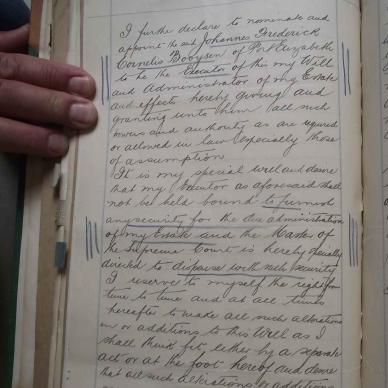 I further declare to nominate and
appoint the said Johannes Frederick
Cornelis Booysen of Port Elizabeth
to be the Executor of this my Will
and Administrator of my Estate
and effects hereby giving and
granting unto him all such
powers and authority as are required
or allowed in law especially those
of assumption
It is my special will and desire
that my Executor as aforesaid shall
not be held bound to furnish
any security for the due administration
of my Estate and the Master of
the Supreme Court is hereby specially
directed to dispense with such security
I reserve to myself the right from
time to time and at all times
hereafter to make all such alterations
in or additions to this Will as I
shall think fit either by a separate
act or at the foot hereof and desire
that all such alterations or additions